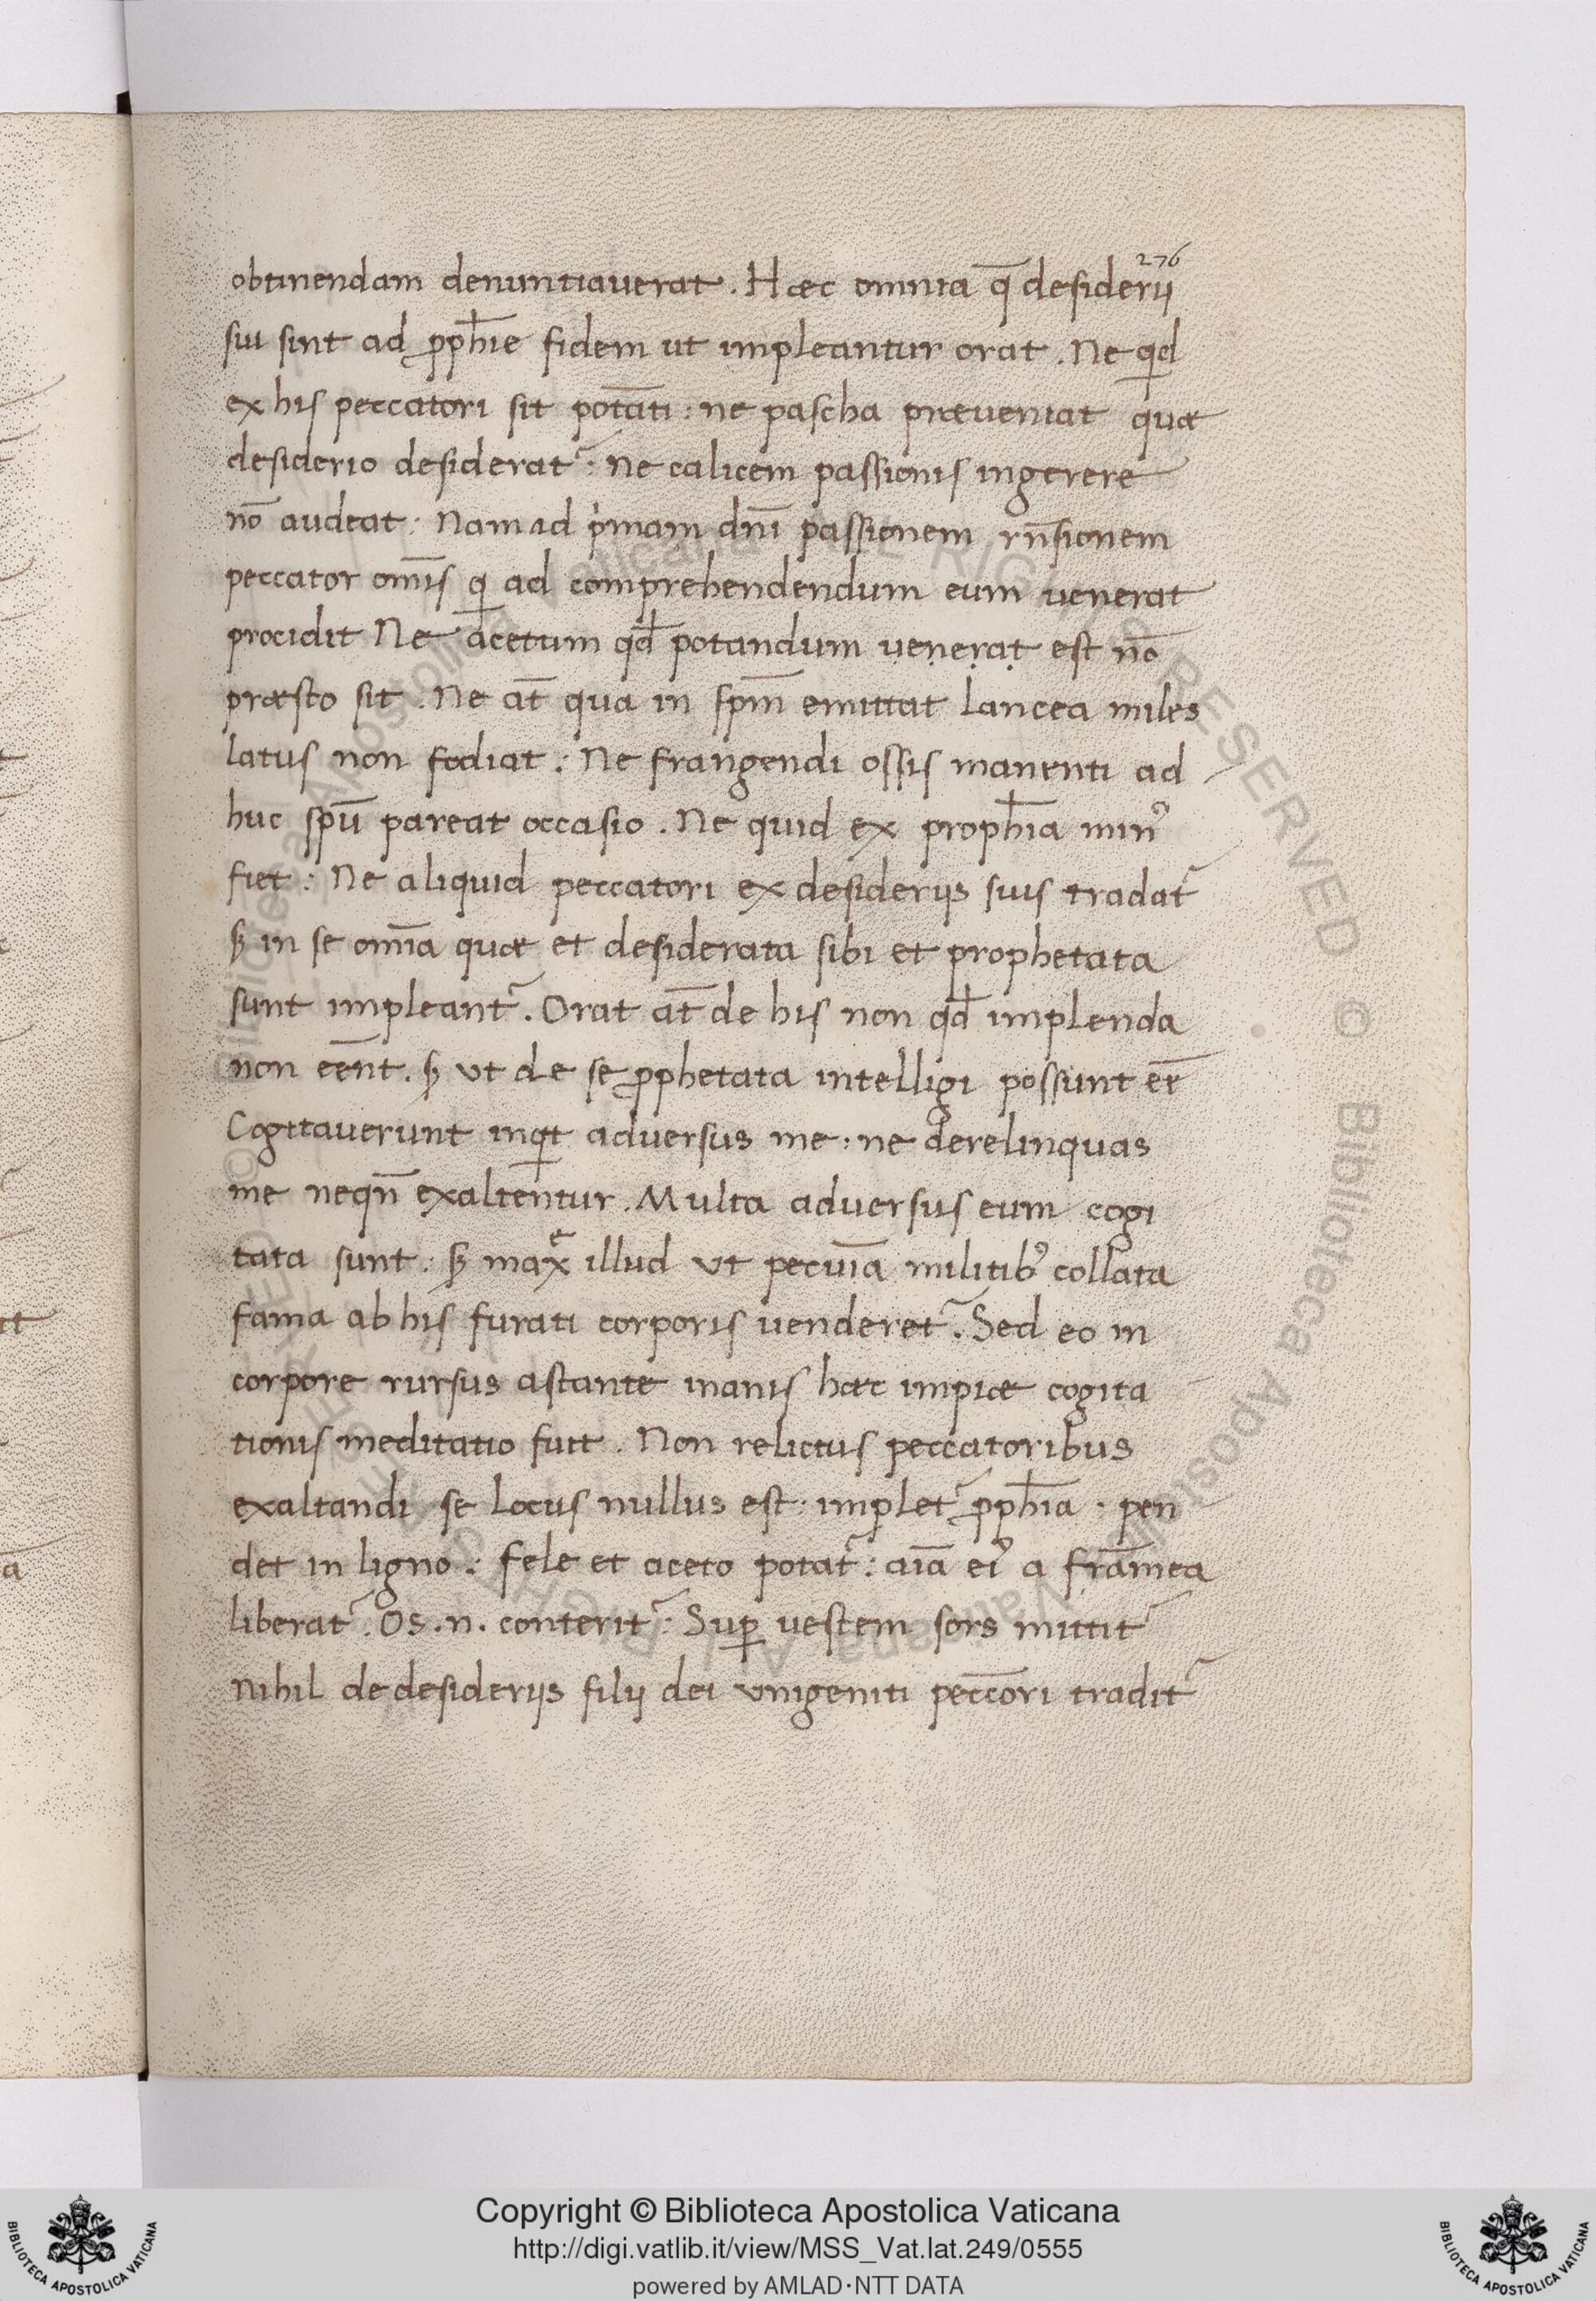 276
obtinendam denuntiauerat. Hæc omnia q̄ desiderij
sui sint ad ꝓph̄ie fidem ut impleantur orat. Ne qd
ex his peccatori sit potāti: ne pascha præueniat quæ
desiderio desiderat᷑: Ne calicem passionis ingerere
nō audeat: Nam ad pͥmam dn̄i passionem rn̄sionem
peccator om̄is q ad comprehendendum eum venerat
procidit Ne acetum qđ potandum venerat est nō
præsto sit. Ne at̄ qua in sp̄m emittat lancea miles
latus non fodiat: Ne frangendi ossis manenti ad
huc spū pareat occasio. Ne quid ex proph̄ia minꝰ
fiet: Ne aliquid peccatori ex desiderijs suis tradat᷑
ẞ in se om̄ia quæ et desiderata sibi et prophetata
sunt impleant᷑. Orat at̄ de his non qđ implenda
non eēnt. ẞ vt de se ꝓphetata intelligi possunt eē
Cogitauerunt inqt adversus me: ne derelinquas
me neqn̄ exaltentur. Multa adversus eum cogi
tata sunt: ẞ maxͤ illud vt pecuīa militibꝰ collata
fama ab his furati corporis venderet᷑. Sed eo in
corpore rursus astante inanis hæc impiæ cogita
tionis meditatio fuit. Non relictus peccatoribus
exaltandi se locus nullus est: implet᷑ ꝓph̄ia: pen
det in ligno: fele et aceto potat᷑: aīa eiꝰ a frāmea
liberat᷑. Os. n. conterit᷑: Suꝑ vestem sors mittit᷑
Nihil de desiderijs filij dei vnigeniti pecc̄ori tradit᷑
Copyright © Biblioteca Apostolica Vaticana
http://digi.vatlib.it/view/MSS_Vat.lat.249/0555
powered by AMLAD·NTT DATA
BIBLIOTECA APOSTOLICA VATICANA
BIBLIOTECA APOSTOLICA VATICANA